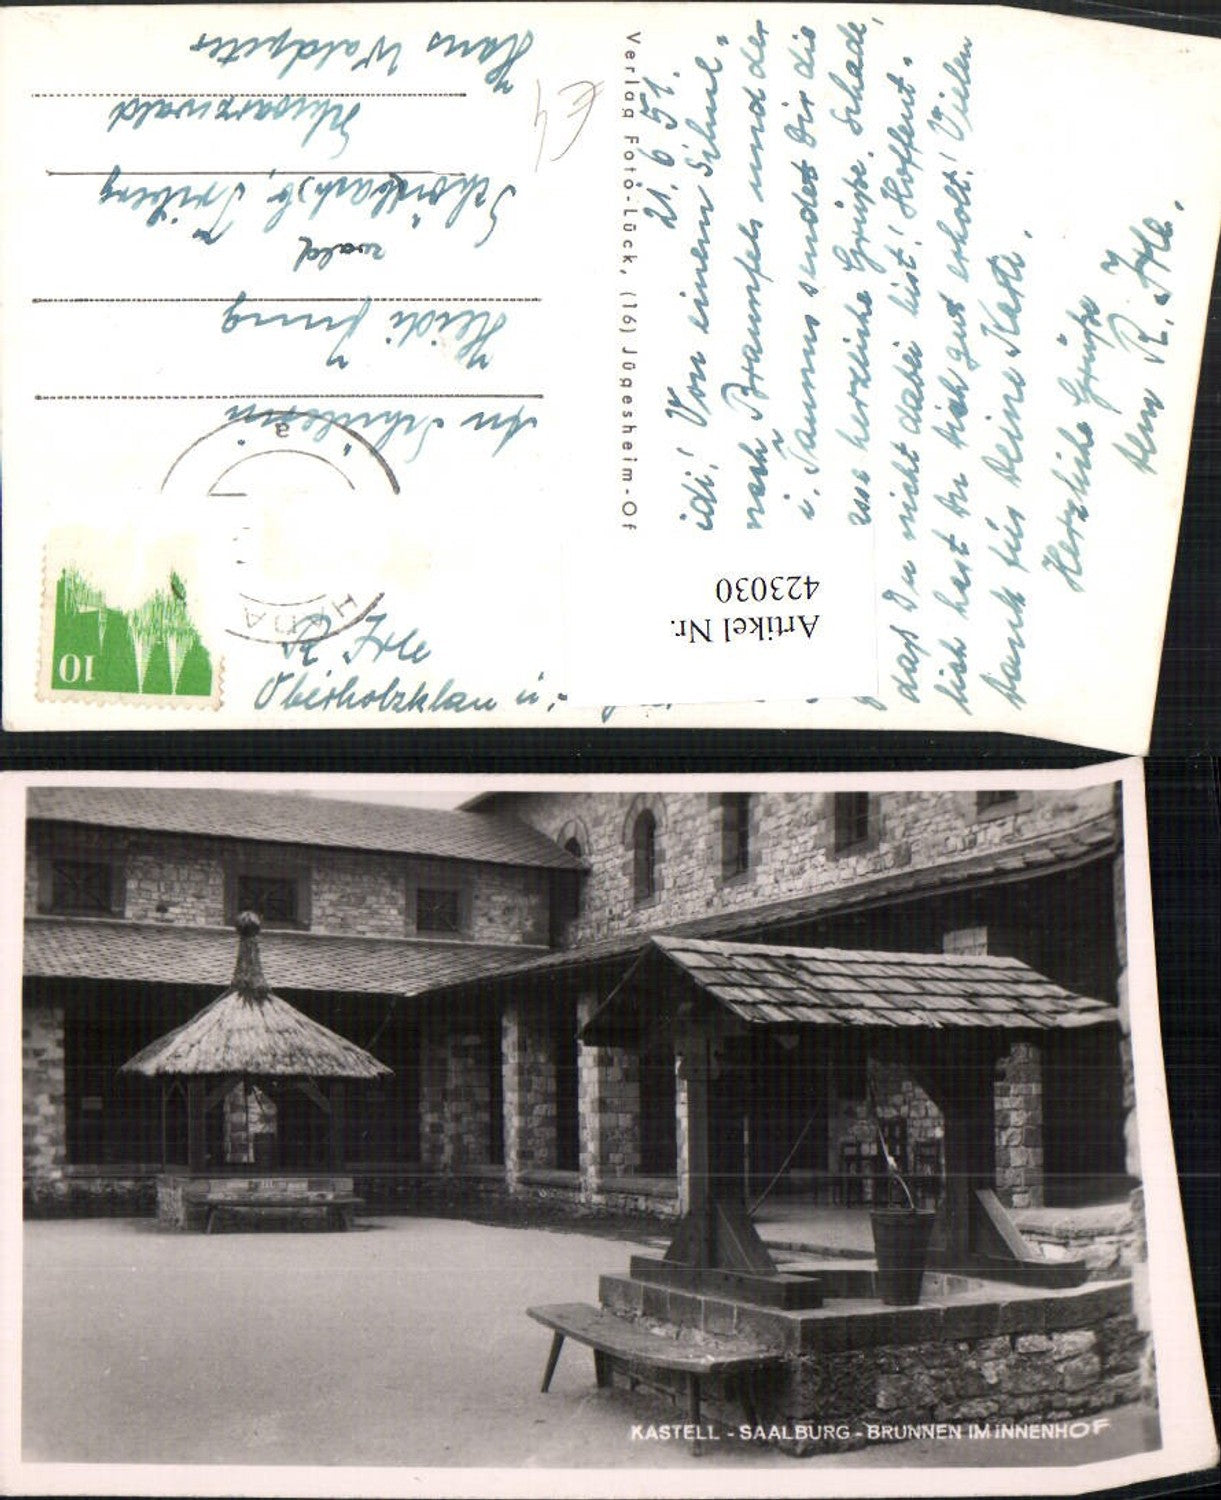 21. 6. 51.
idi! Von einem Schul-
nach Braunfels und der
i. Taunus sendet Dir die
herzliche Grüße. Schade,
daß Du nicht dabei bist! Hoffent-
lich hast Du Dich gut erholt! Vielen
Dank für Deine Karte.
Herzliche Grüße
Dein R. Irle.
Verlag Foto-Lück, (16) Jügesheim-Of
Irle
Oberholzklau
10
An Schülerin
Heidi Jung
wald
Triberg
Schwarzwald
Haus Waldpeter
a
Artikel Nr.
423030
KASTELL - SAALBURG - BRUNNEN IM INNENHOF